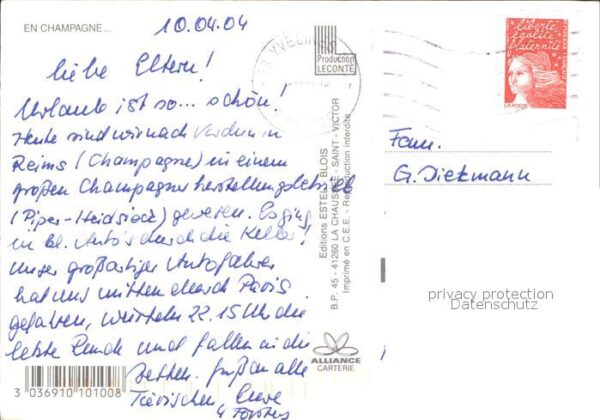 EN CHAMPAGNE...
10.04.04
liebe Eltern!
Urlaub ist so... schön!
Heute sind wir nach Verdun in
Reims (Champagne) in einem
großen Champagnerherstellungsbetrieb
(Piper-Heidsieck) gewesen. Es ging
in el. Auto's durch die Keller!
Unser großartiger Autofahrer
hat uns mitten durch Paris
gefahren, 22.15 Uhr die
letzte Runde und fallen in die
Betten. Grüßen alle
Eure
4
3 036910 101008
YVELINES
Production
LECONTE
Editions ESTEL - BLOIS
B.P. 45 - 41260 LA CHAUSSÉE - SAINT - VICTOR
Imprimé en C.E.E. - Reproduction interdite
ALLIANCE
CARTERIE
liberté
égalité
fraternité
LA POSTE
Fam.
G. Diekmann
privacy protection
Datenschutz